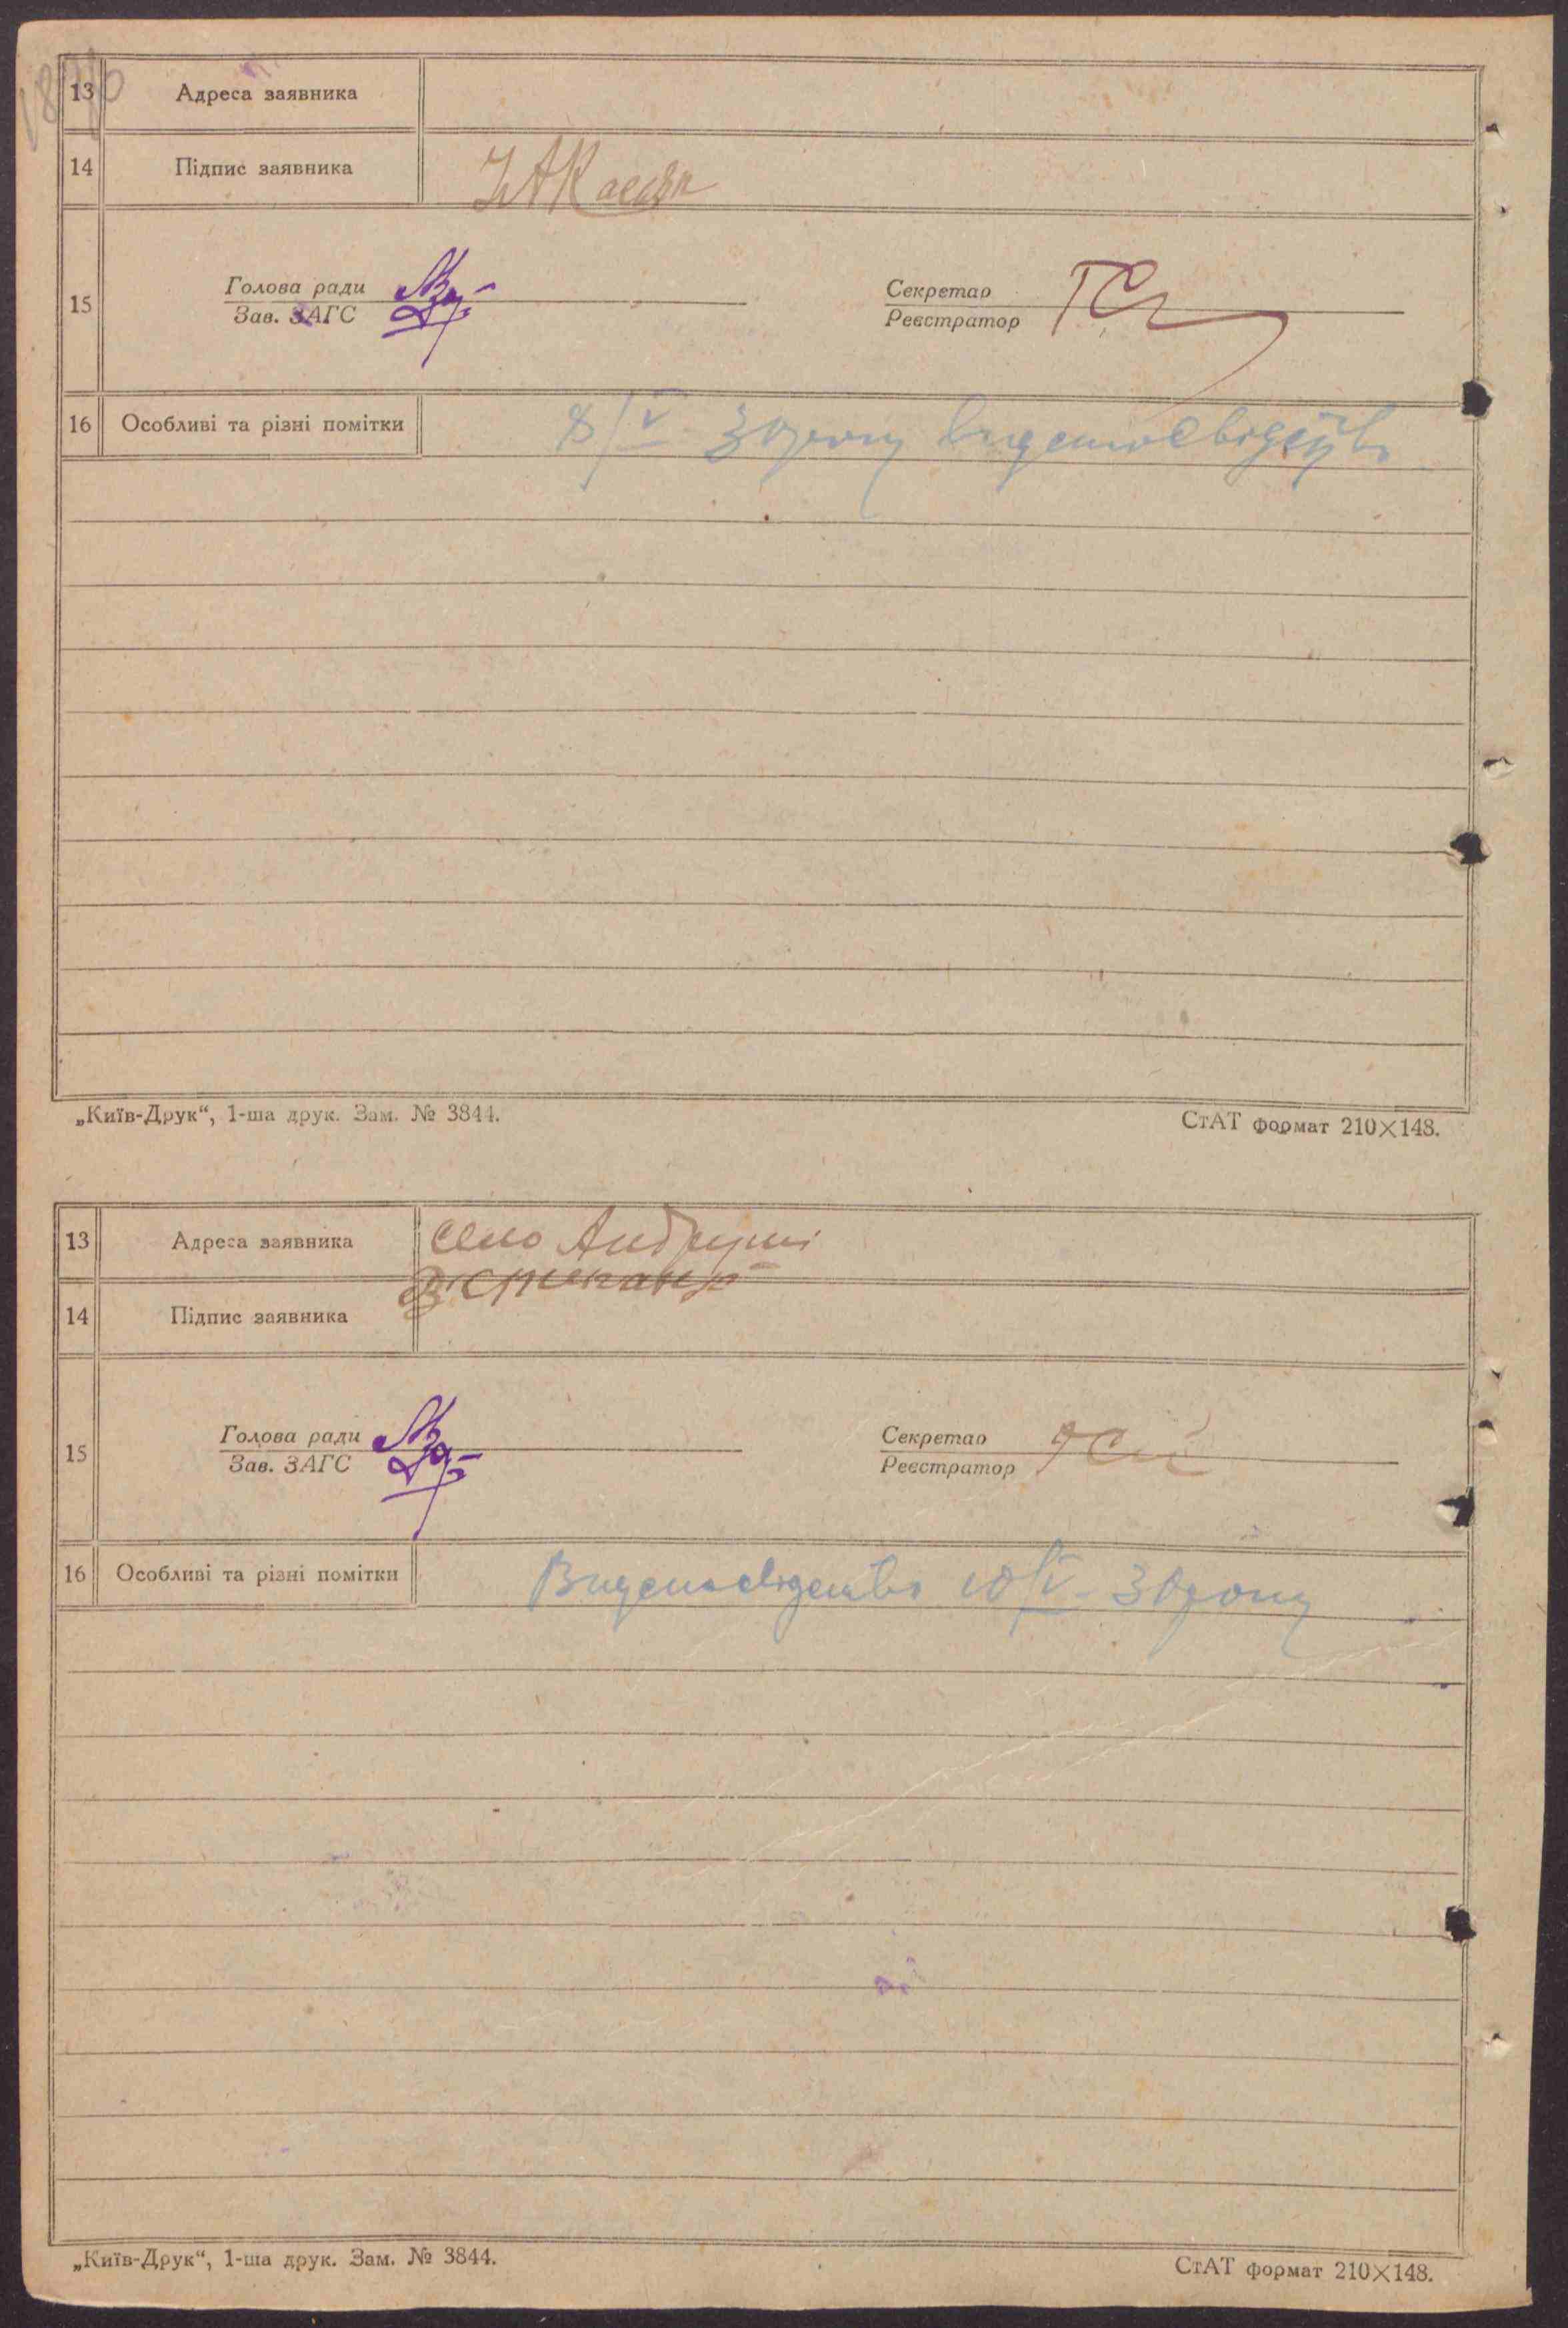 13 Адреса заявника
14 Підпис заявника
15 Голова ради
Зав. ЗАГС
Секретар
Реєстратор
16 Особливі та різні помітки 8/V 30 року видано свідоцтво
„Київ-Друк“, 1-ша друк. Зам. № 3844. СтАТ формат 210×148.
13 Адреса заявника село Андруші
14 Підпис заявника
15 Голова ради
Зав. ЗАГС
Секретар
Реєстратор
16 Особливі та різні помітки Видано 10/V 30 року
„Київ-Друк“, 1-ша друк. Зам. № 3844. СтАТ формат 210×148.